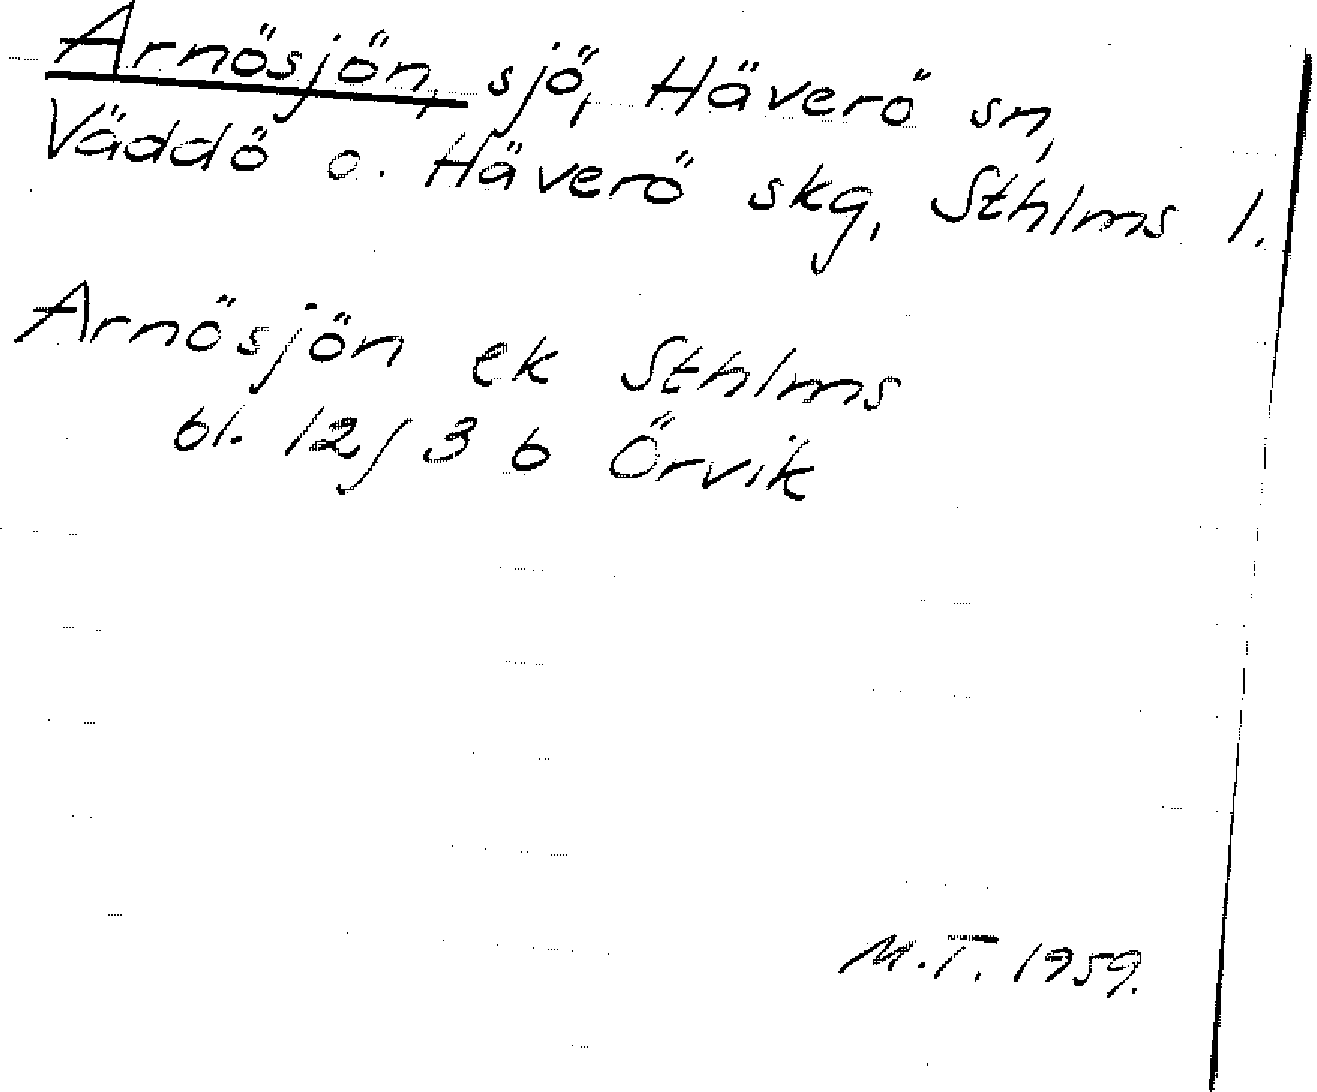 Arnösjön, sjö, Häverö sn,
Väddö o. Häverö skg, Sthlms l.
Arnösjön ek Sthlms
bl. 12j 3 b Örvik
M.T. 1959.